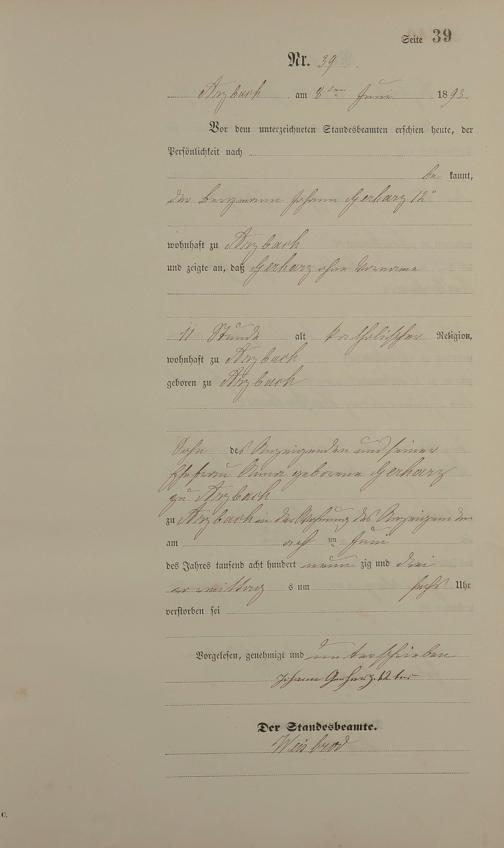 Seite 39
Nr. 39.
Arzbach am 8ten Juni 1893
Vor dem unterzeichneten Standesbeamten erschien heute, der
Persönlichkeit nach
be kannt,
der Bergmann Johann Gerharz 12r
wohnhaft zu Arzbach
und zeigte an, daß Gerharz ohne Vorname
11 Stunde alt katholischer Religion,
wohnhaft zu Arzbach
geboren zu Arzbach
Sohn des Anzeigenden und seiner
Ehefrau Anna geborene Gerharz
zu Arzbach
zu Arzbach in der Wohnung des Anzeigenden
am acht ten Juni
des Jahres tausend acht hundert neun zig und drei
vormittag s um sechs Uhr
verstorben sei
Vorgelesen, genehmigt und unterschrieben
Johann Gerharz 12 ter
Der Standesbeamte.
Weisbrod
C.